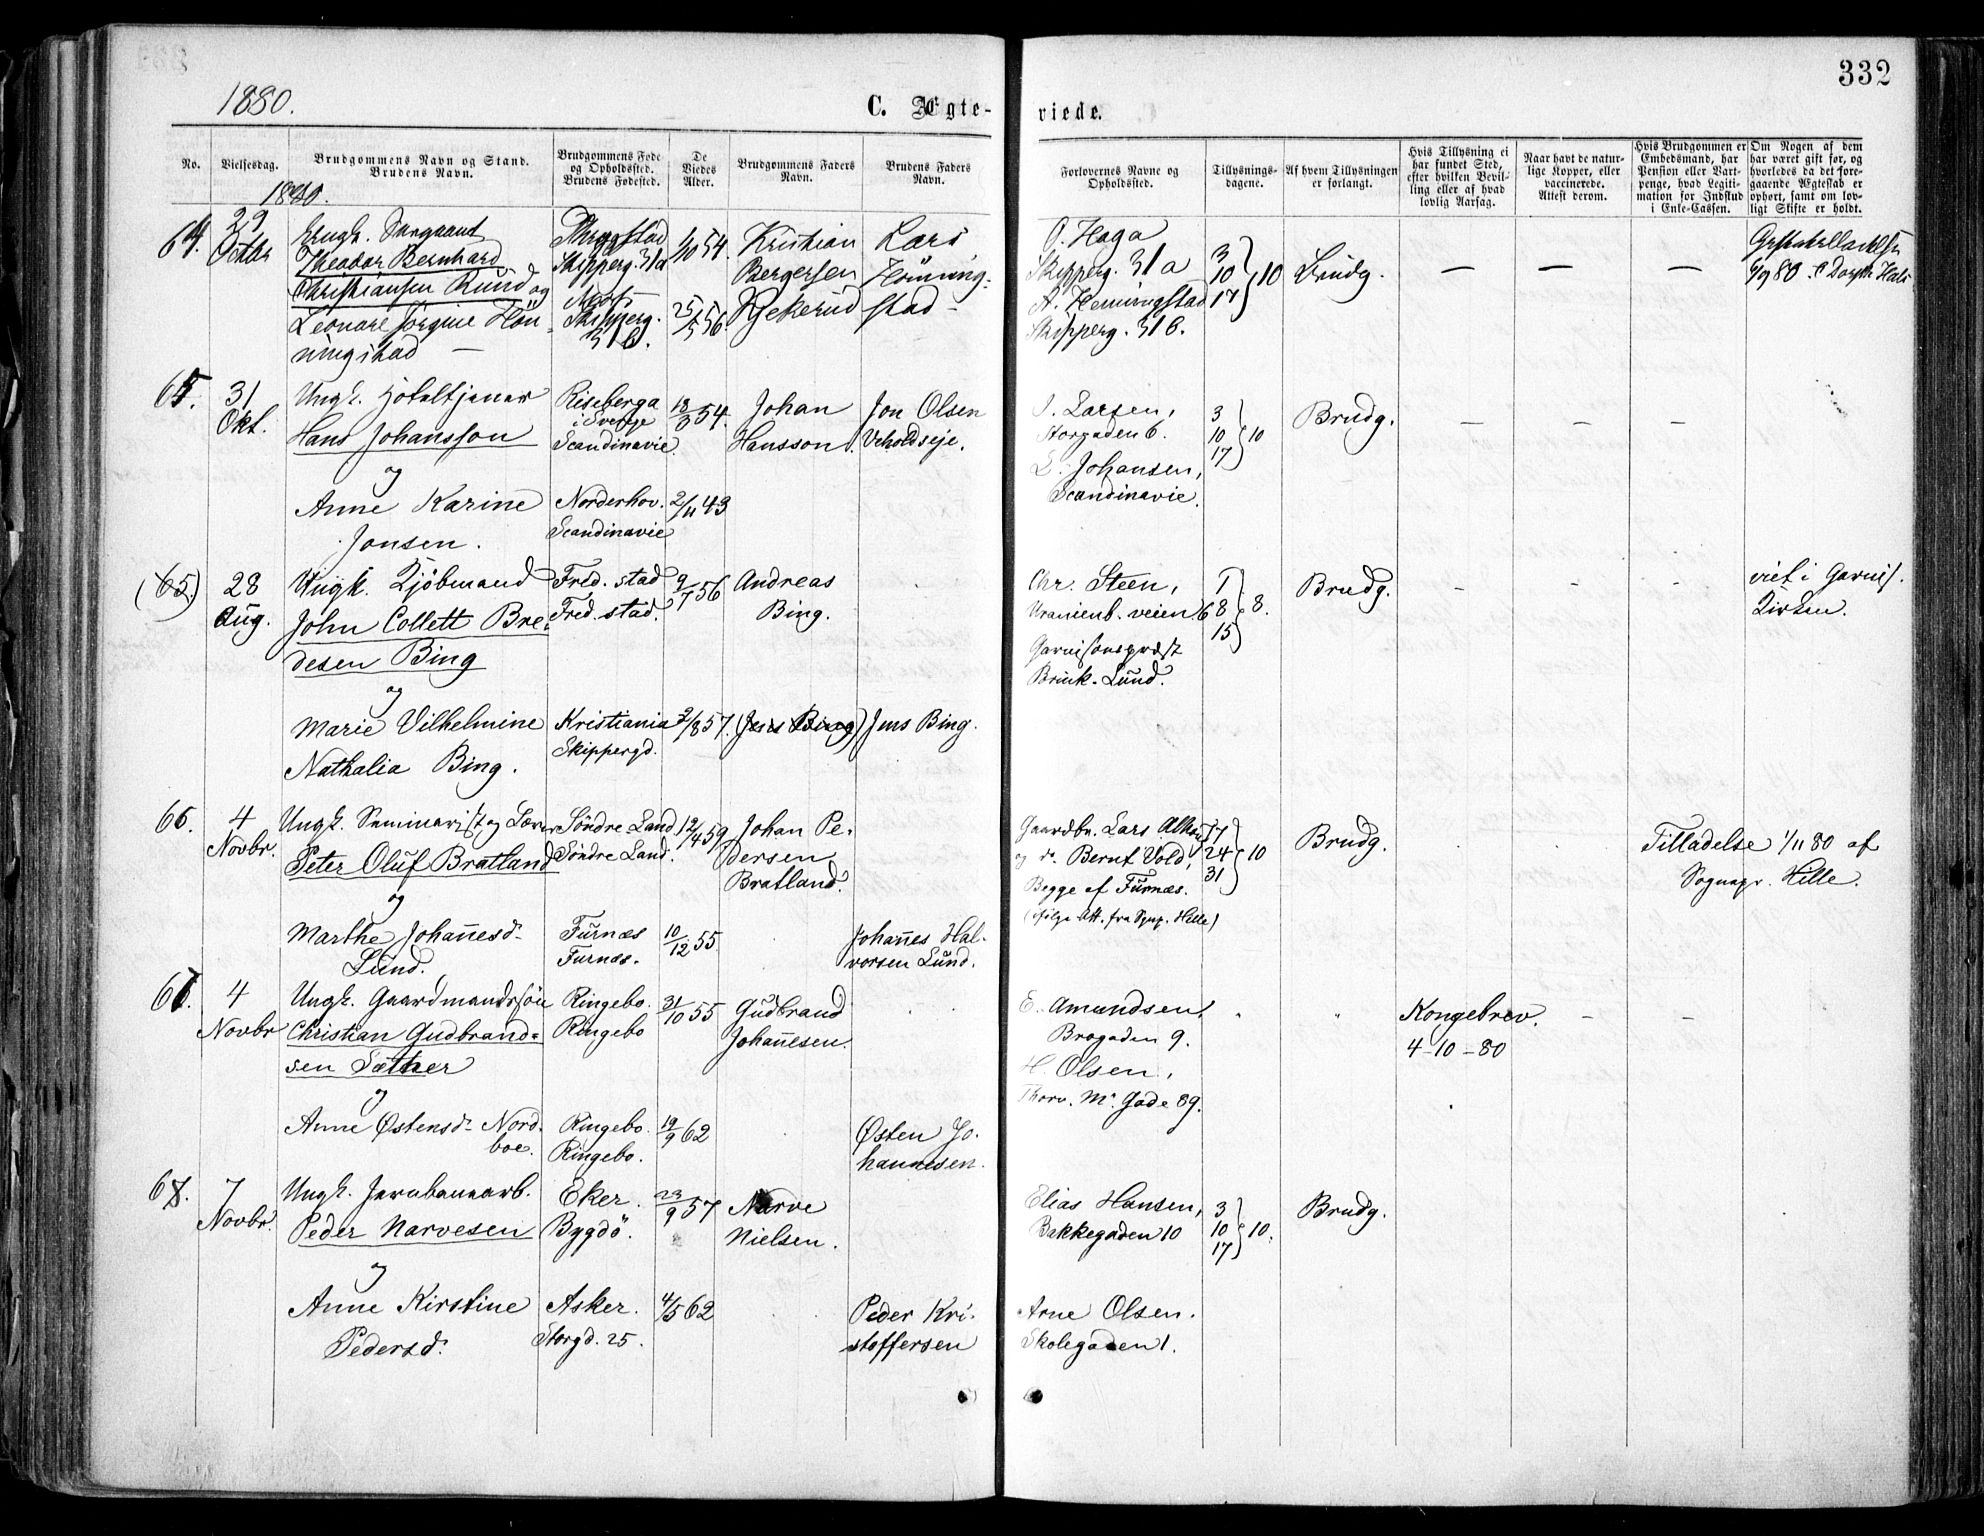 332
1880.
C. Ægte-
viede.
No.
Vielsesdag.
Brudgommens Navn og Stand.
Brudens Navn.
Brudgommens Føde
og Opholdssted.
Brudens Fødested.
De
Viedes
Alder.
Brudgommens Faders
Navn.
Brudens Faders
Navn.
Forlovernes Navne og
Opholdssted.
Tillysnings-
dagene.
Af hvem Tillysningen
er forlangt.
Hvis Tillysning ei
har fundet Sted,
efter hvilken Bevil-
ling eller af hvad
lovlig Aarsag.
Naar havt de natur-
lige Kopper, eller
vaccinerede.
Attest derom.
Hvis Brudgommen er
Embedsmand, har
Pension eller Vart-
penge, hvad Legiti-
mation for Indskud
i Enke-Cassen.
Om Nogen af dem
har været gift før, og
hvorledes da det fore-
gaaende Ægteskab er
ophørt, samt om lov-
ligt Skifte er holdt.
1880.
64.
29
Octbr
Ungk. Sergeant
Theodor Bernhard
Christiansen Rund og
Leonare Jorgine Høn-
ningstad —
Skipperg. 31a
Skipperg.
31 b.
1/10 54.
25/5 56.
Kristian
Bergersen
Kjekerud
Lars
Hønning-
stad —
O. Haga
Skipperg. 31a
A. Henningstad
Skipperg. 31 b.
3
10
17
10
Brudg.
— — —
65.
31
Okt.
Ungk. Hoteltjener
Hans Johansson
og
Anne Karine
Jonsen.
Riseberga
i Sverije
Scandinavie
Norderhov.
Scandinavie
18/3 54.
2/11 43
Johan
Hansson.
Jon Olsen
Veholdseje.
J. Larsen,
Storgaden 6.
L. Johansen,
Scandinavie
3
10
17
10
Brudg.
— — —
(65.)
28
Aug.
Ungk. Kjøbmand
John Collett Bre-
desen Bing
og
Marie Vilhelmine
Nathalia Bing.
Fred. stad
Fred. stad.
Kristiania
Skippergd.
9/7 56
2/8 57.
Andreas
Bing.
(Jens Bing)
Jens Bing.
Chr. Steen,
Uranienb. veien 6
Garnisonspræst
Brink-Lund.
1
8
15
8.
Brudg.
- — —
viet i Garnis.
Kirken.
66.
4
Novbr.
Ungk. Seminarist og Lærer
Peter Oluf Bratland
og
Marthe Johannesd.
Lund.
Søndre Land
Søndre Land.
Furnæs
Furnæs.
12/4 59
10/12 55
Johan Pe-
dersen
Bratland.
Johannes Hal-
vorsen Lund.
Gaardbr. Lars Alhaug
og do. Bernt Vold,
Begge af Furnæs.
(ifølge Att. fra Spr. Hille)
17
24
31
10
Brudg.
Tilladelse 1/11 80 af
Sognepr. Hille.
67.
4
Novbr
Ungk. Gaardmandssøn
Christian Gudbrand-
sen Sæther
og
Anne Østensd. Nord-
boe.
Ringebo.
Ringebo
Ringebo.
Ringebo.
31/10 55
19/9 62
Gudbrand
Johannesen.
Østen Jo-
hannesen.
E. Amundsen,
Brogaden 9.
H. Olsen,
Thorv. M. Gade 89.
Kongebrev.
4-10-80
- -
68.
7
Novbr.
Ungk. Jernbanearb.
Peder Narvesen
og
Anne Kirstine
Pedersd.
Eker.
Bygdö.
Asker.
Storgd. 25.
23/9 57
4/5 62
Narve
Nielsen.
Peder Kri-
stoffersen
Elias Hansen,
Bakkegaden 10
Arne Olsen.
Skolegaden 1.
3
10
17
10.
Brudg.